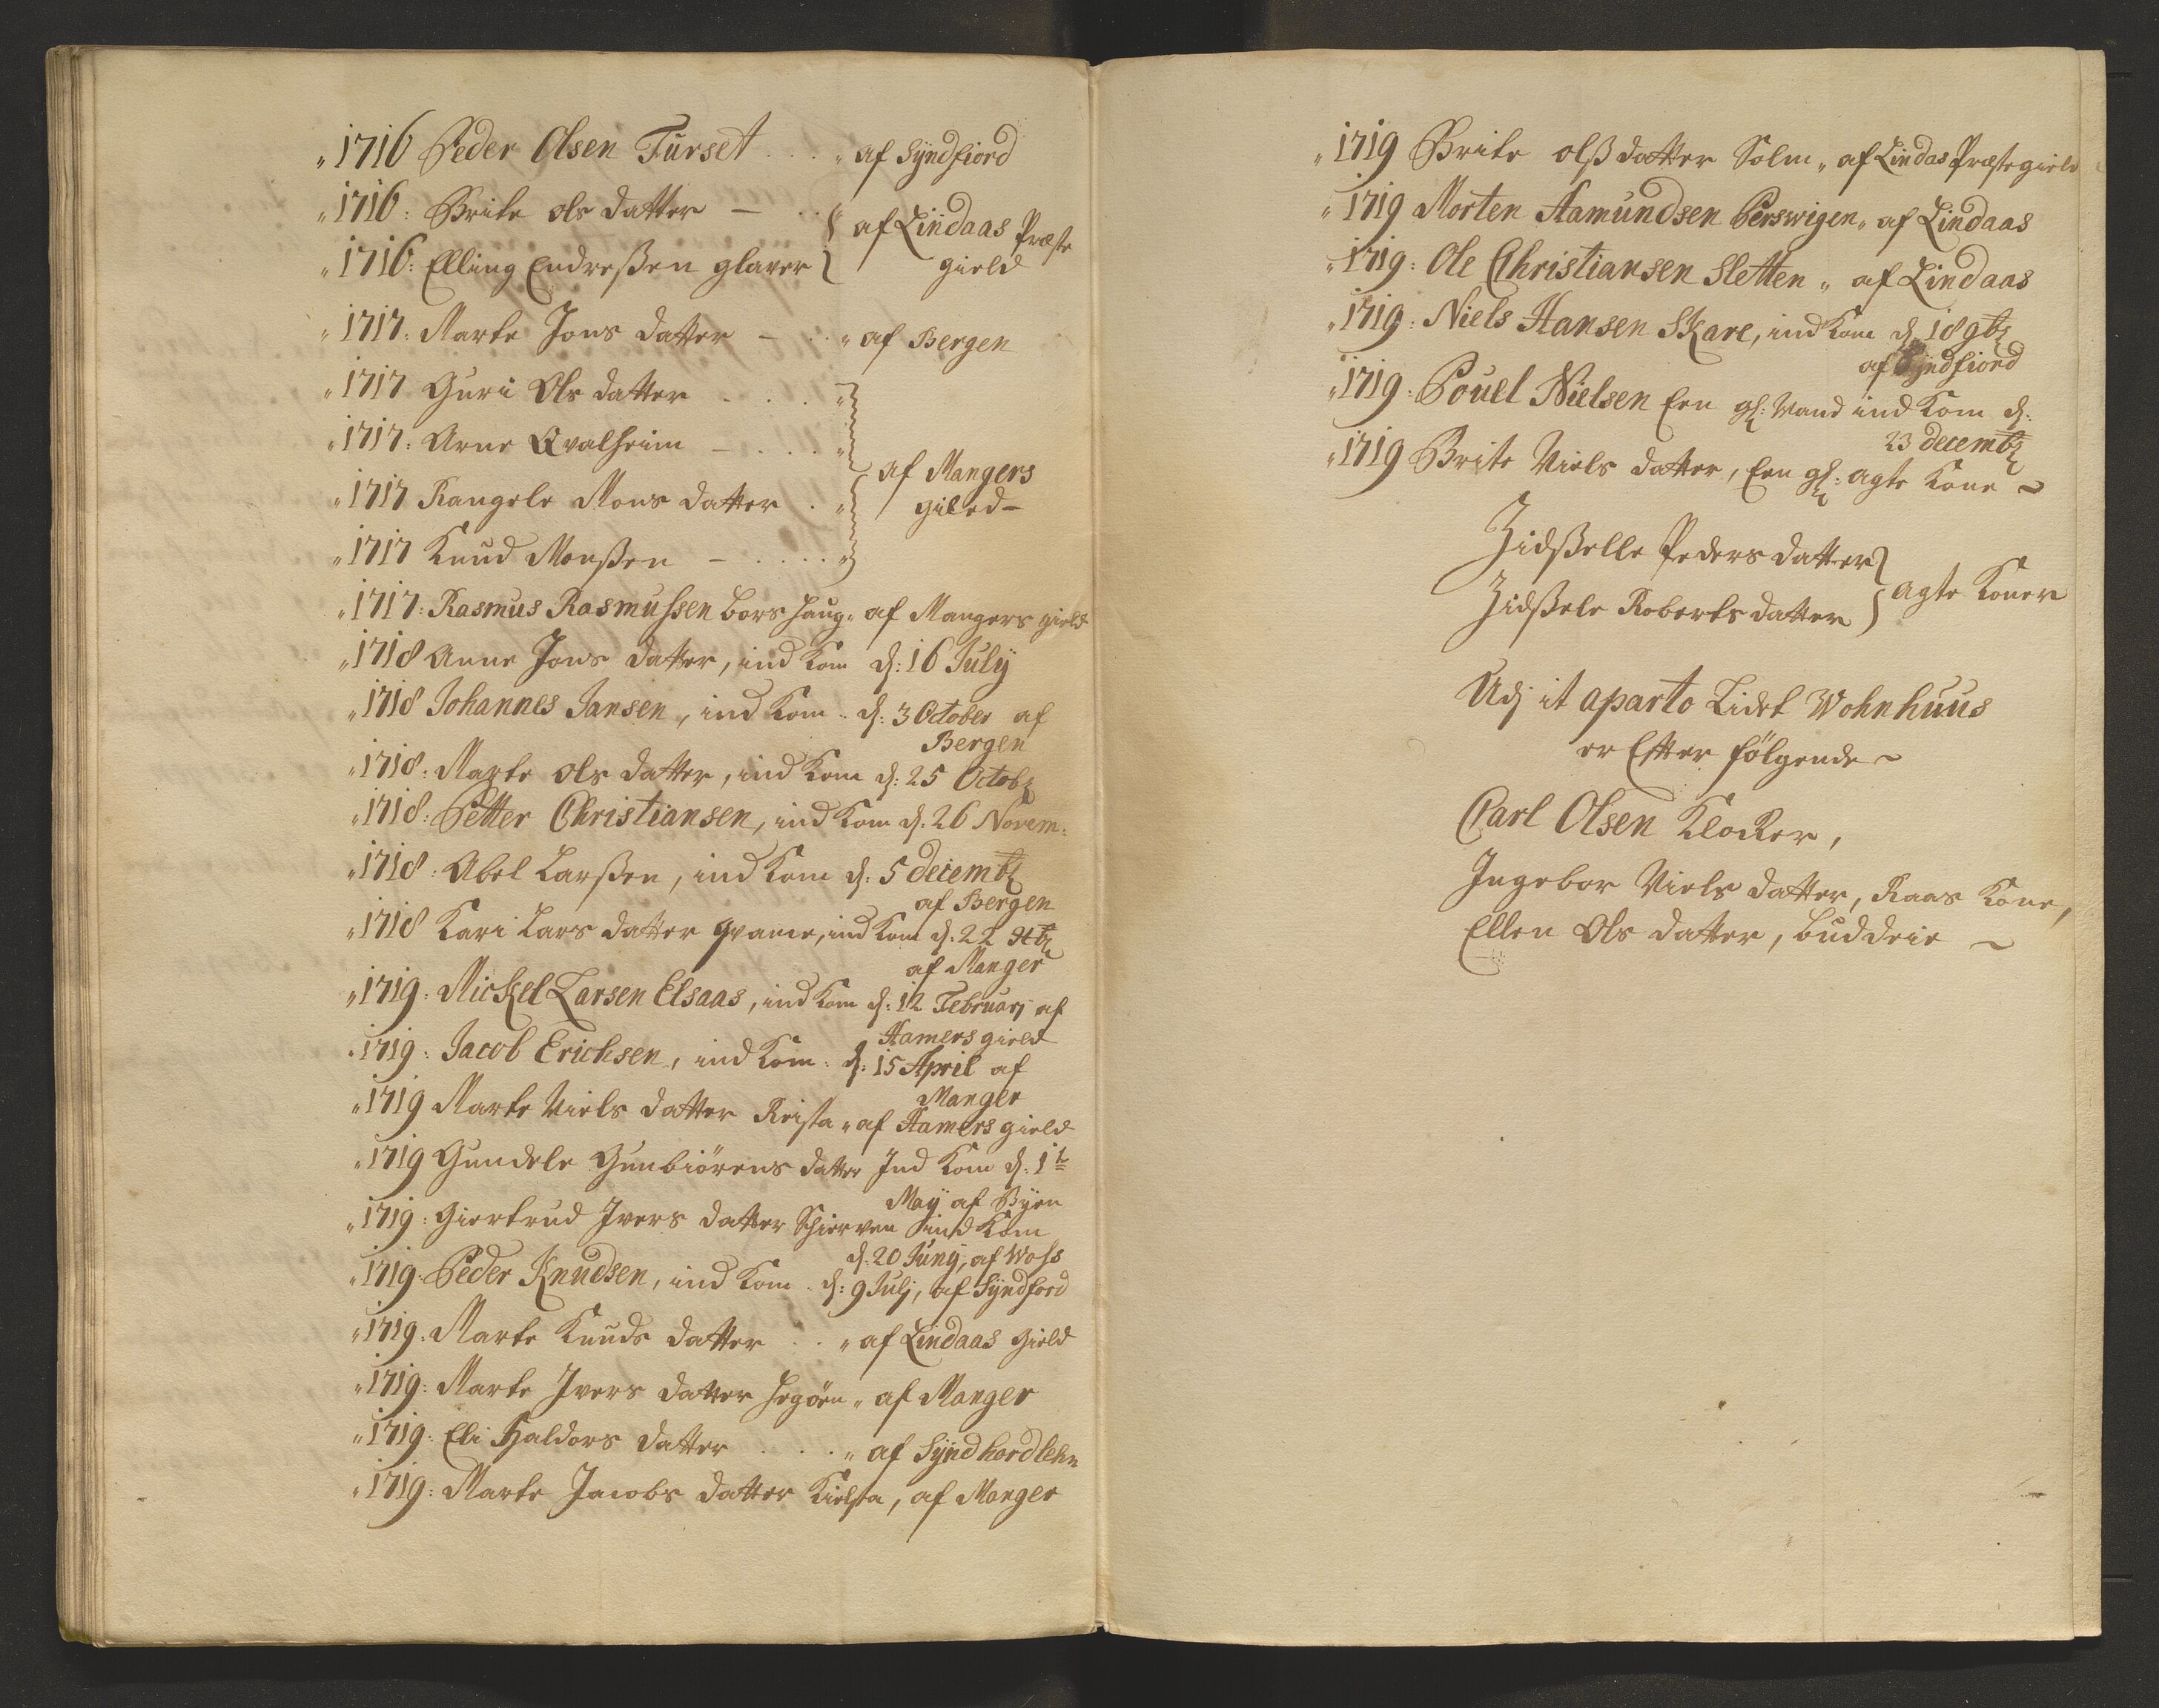 „1716 Peder Olsen Furset . . . „ af Syndfiord
„1716: Brite Ols datter — . . „ af Lindaas Præste
„1716: Elling Endreßen glaver gield
„1717: Marte Jons datter — . . „ af Bergen
„1717 Guri Ols datter . . . . „
„1717: Arne Qvalheim — . . . „
af Mangers
„1717 Rangele Mons datter . „ gield —
„1717 Knud Monßen — . . . . „
„1717: Rasmus Rasmussen bors haug „ af Mangers gield
„1718 Anne Jons datter, ind kom d: 16 July
„1718 Johannes Jansen, ind kom d: 3 October af
Bergen
„1718: Marte Ols datter, ind kom d: 25 Octobr
„1718: Petter Christiansen, ind kom d: 26 Novem:
„1718: Abel Larßen, ind kom d: 5 decembr
af Bergen
„1718 Kari Lars datter qvame, ind kom d: 22
af Manger
„1719: Mickel Larsen Elsaas, ind kom d: 12 Februarj af
Hamers gield
„1719: Jacob Erichsen, ind kom d: 15 April af
Manger
„1719 Marte Niels datter Reista „ af Hamers gield
„1719 Gundele Gunbiörens datter Ind kom d: 1t
May af Byen
„1719: Giertrud Ivers datter Schierven ind kom
d: 20 Junj, af Woss
„1719: Peder Knudsen, ind kom d: 9 Julj, af Syndford
„1719: Marte Knuds datter . . „ af Lindaas gield
„1719: Marte Ivers datter Hegöen „ af Manger
„1719: Eli Haldors datter . . . „ af Syndhordlehn
„1719: Marte Jacobs datter Kielsta, af Manger
„1719 Brite olß datter Solm „ af Lindas Præstegield
„1719 Morten Aamundsen Perswigen „ af Lindaas
„1719: Ole Christiansen Sletten „ af Lindaas
„1719: Niels Hansen Skare, ind kom d: 18 9br
af Syndfiord
„1719: Pouel Nielsen Een gl: Mand ind kom d:
23 decembr
„1719 Brite Niels datter, Een gl: ægte Kone ~
Zidßelle Peders datter
Zidßele Roberts datter ægte Koner
Udj it aparto Lidet Wohnhuus
er Efter følgende ~
Carl Olsen Klocker,
Ingebor Niels datter, Raas Kone,
Ellen Ols datter, buddeie ~